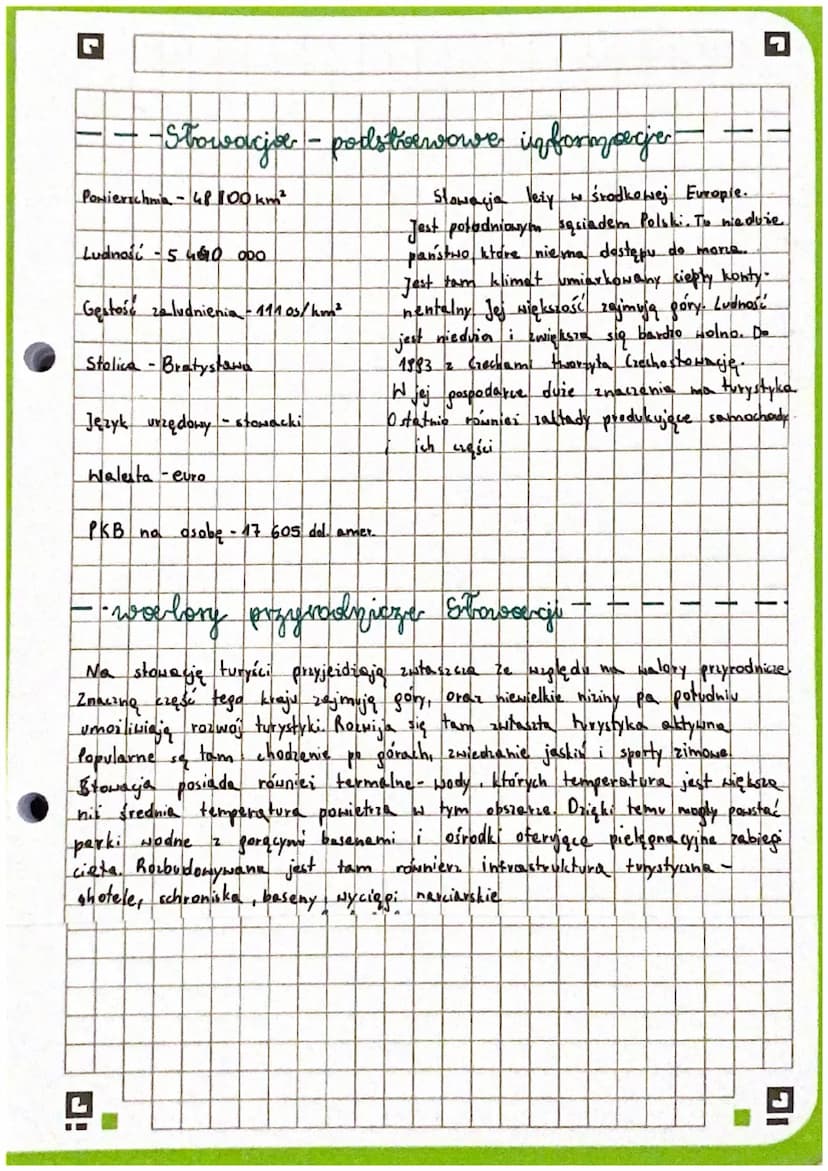 Słowacja - podstawowe informacje
Powierzchnia - 48 100 km²
Ludność - 5 440 000
Gęstość zaludnienia - 111 os/km²
Stolica - Bratysława
Język urzędowy - słowacki
Waluta - euro
PKB na osobę - 17 605 dol. amer.
Słowacja leży w środkowej Europie.
Jest południowym sąsiadem Polski. To nieduże
państwo, które nie ma dostępu do morza.
Jest tam klimat umiarkowany ciepły konty-
nentalny. Jej większość zajmują góry. Ludność
jest nieduża i zwiększa się bardzo wolno. Do
1993 z Czechami tworzyła Czechosłowację.
W jej gospodarce duże znaczenia ma turystyka
Ostatnio również zakłady produkujące samochody
i ich części
walory przyrodnicze Słowacji
Na słowację turyści przyjeżdżają zwłaszcza ze względu na walory przyrodnicze.
Znaczną część tego kraju zajmują góry, oraz niewielkie niziny pa południu
umożliwiają rozwój turystyki. Rozwija się tam zwłaszta turystyka aktywna
Popularne są tam: chodzenie po górach, zwiedzanie jaskiń i sporty zimowe.
Słowacja posiada również termalne- wody, których temperatura jest większa
niż średnia temperatura powietrza w tym obszarze. Dzięki temu mogły powstać
parki wodne z gorącymi basenami i ośrodki oferujące pielęgnacyjne zabiegi
ciała. Rozbudowywana jest tam równierz infrastruktura turystyczna -
hotele, schroniska, baseny, wyciągi narciarskie